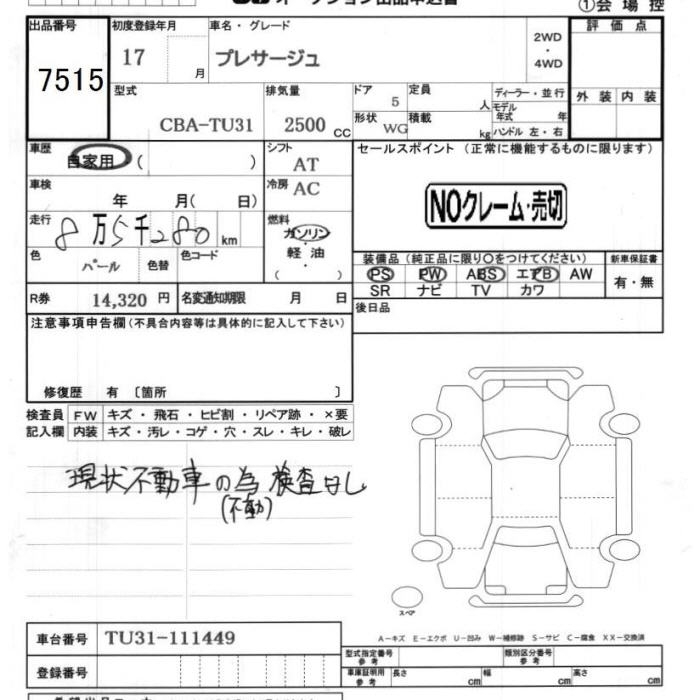 オークション出品申込書
①会場控
出品番号 初度登録年月 車名・グレード 評価点
7515 17 月 プレサージュ 2WD・4WD
型式 排気量 ドア 定員 ディーラー・並行 外装 内装
CBA-TU31 2500 CC 5 人 モデル年式 年
形状 WG 積載 kg ハンドル 左・右
車歴 自家用 ( ) シフト AT セールスポイント (正常に機能するものに限ります)
車検 年 月( 日) 冷房 AC
NOクレーム・売切
走行 8万5千280 km 燃料 ガソリン・軽油・( )
色 パール 色替 色コード
装備品 (純正品に限り○をつけてください) 新車保証書
PS PW ABS エアB AW 有・無
SR ナビ TV カワ
R券 14,320 円 名変通知期限 月 日
後日品
注意事項申告欄 (不具合内容等は具体的に記入して下さい)
修復歴 有 〔箇所 〕
検査員 FW キズ・飛石・ヒビ割・リペア跡・×要
記入欄 内装 キズ・汚レ・コゲ・穴・スレ・キレ・破レ
現状不動車の為 検査なし
(不動)
スペア
A-キズ E-エクボ U-凹み W-補修跡 S-サビ C-腐食 XX-交換済
車台番号 TU31-111449
型式指定番号 参考 類別区分番号 参考
登録番号 車庫証明用 参考 長さ cm 幅 cm 高さ cm